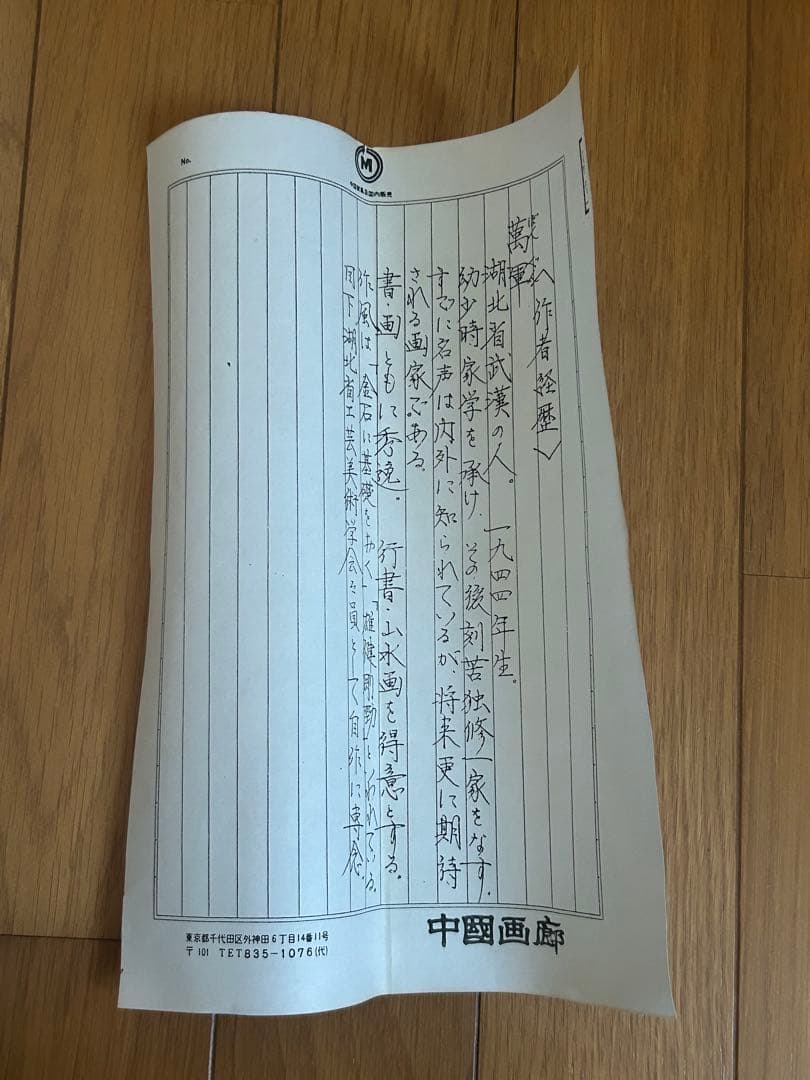 〈作者経歴〉
萬軍
湖北省武漢の人。一九四四年生。
幼少時家学を承け、その後刻苦独修一家をなす。
すでに名声は内外に知られているが、将来更に期待
される画家である。
書・画ともに秀逸。行書・山水画を得意とする。
作風は「金石に基礎をおく」「雄健剛勁」といわれている。
目下湖北省工芸美術学会々員として自作に専念。
No.
M
中國画廊
東京都千代田区外神田6丁目14番11号
〒101 TET835-1076(代)